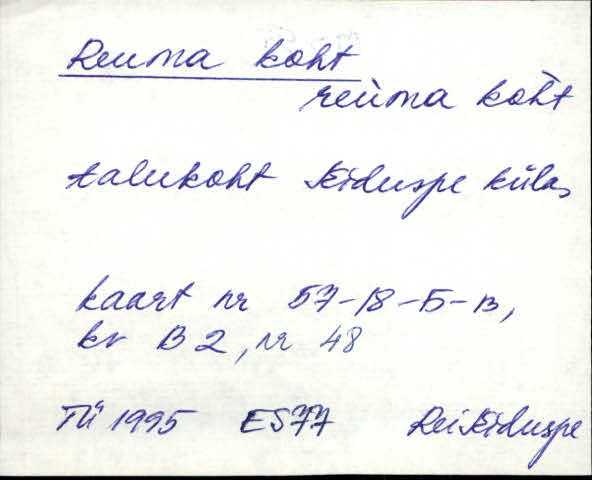 Reuma koht
reùma koh̀t
talukoht Kiduspe külas
kaart nr 57-18-Б-в,
kv B2, nr 48
TÜ 1995 ES77 Rei Kiduspe